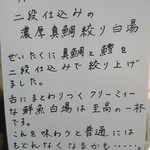 二段仕込みの
濃厚真鯛絞り白湯
ぜいたくに真鯛と鱧を
二段仕込みで絞り上げ
ました。
舌にまとわりつくクリーミィー
な鮮魚白湯は至高の一杯
です。
これを味わうと普通には
もどれなくなるかも・・・・・。